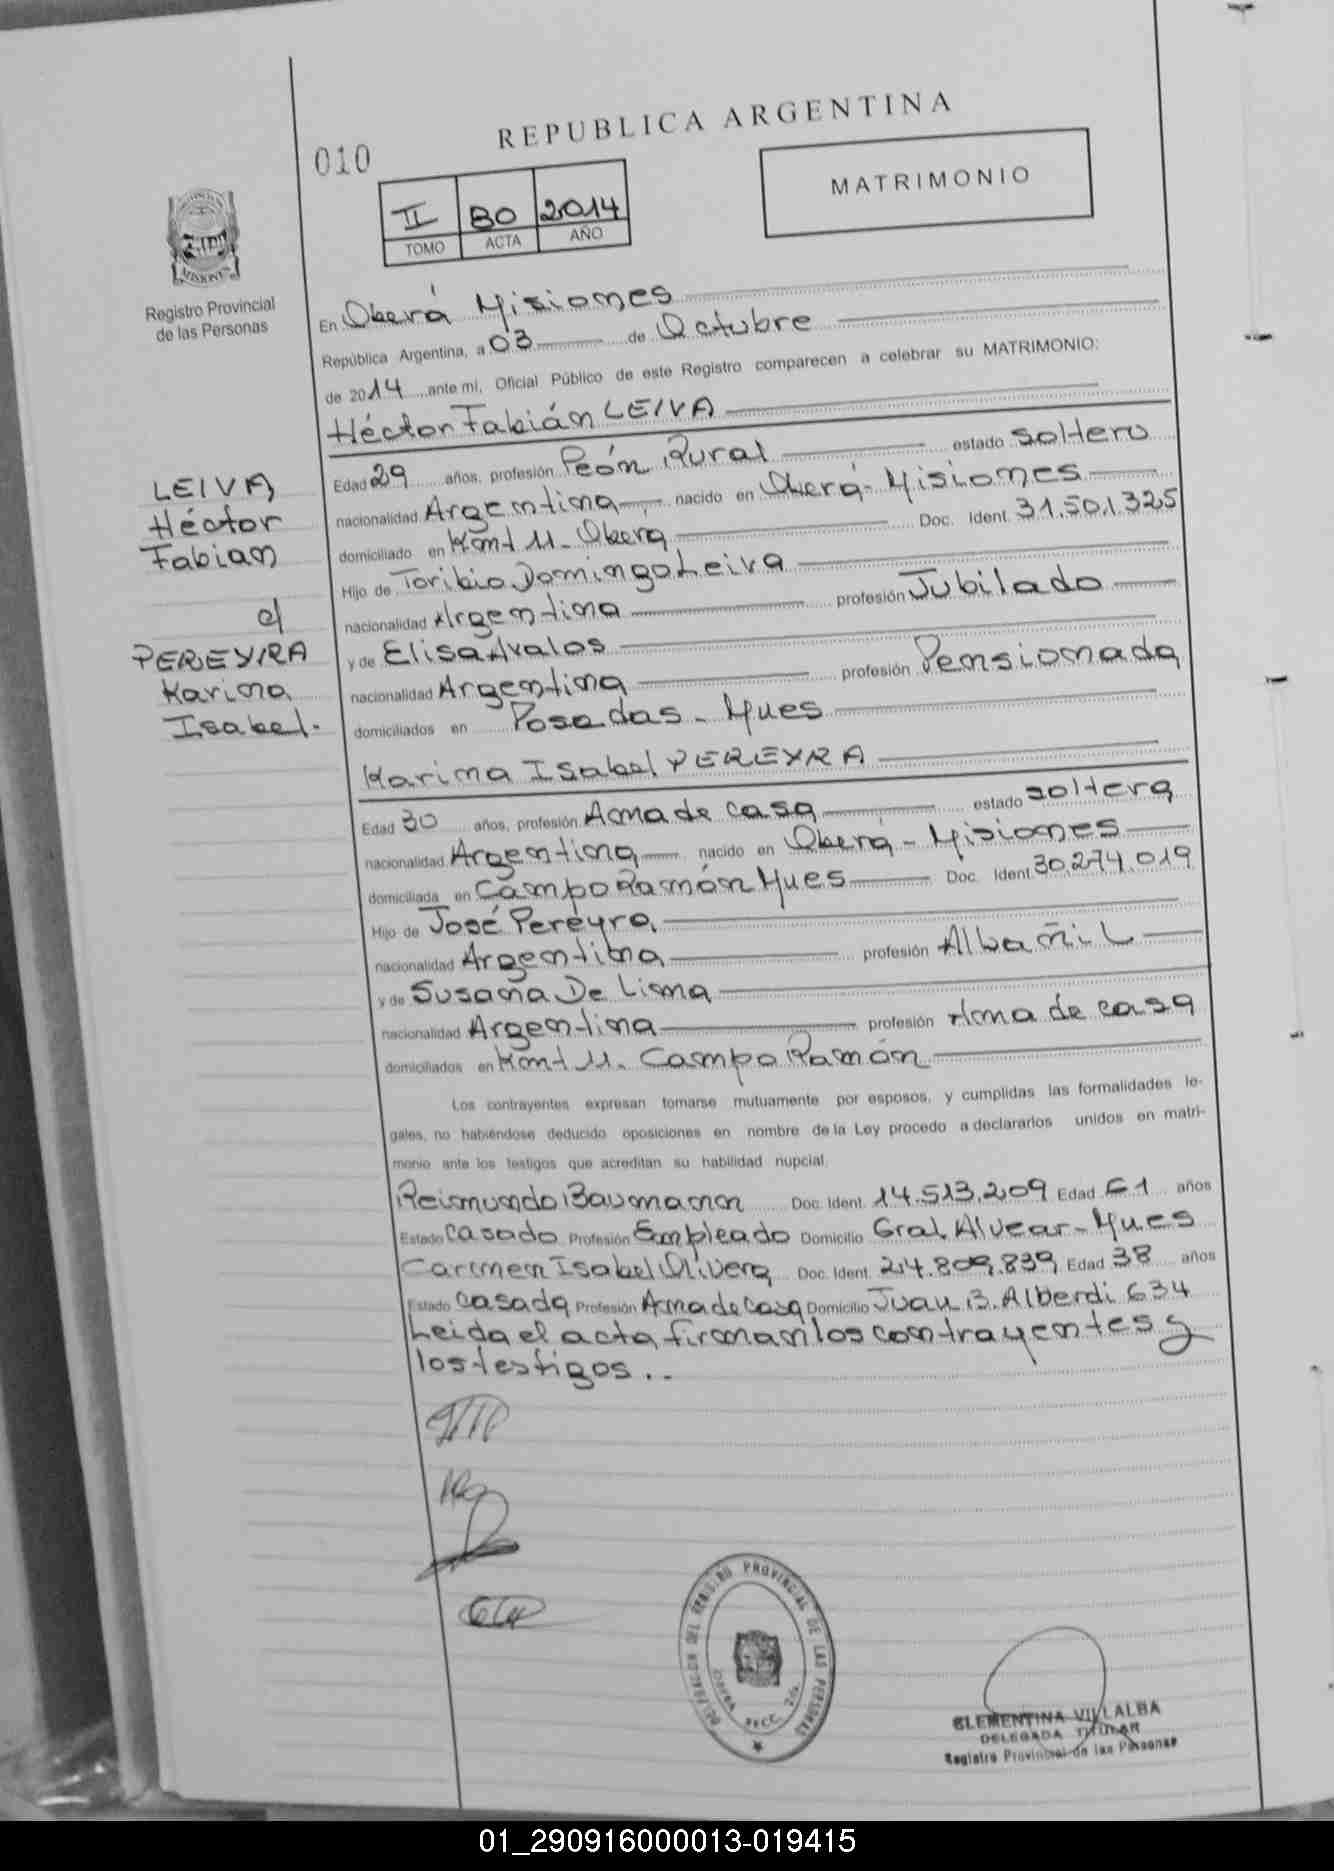 REPUBLICA ARGENTINA
010
MATRIMONIO
II 80 2014
TOMO ACTA AÑO
MISIONES
Registro Provincial
de las Personas
En Oberá Misiones
República Argentina, a 03 de Octubre
de 2014 ante mi, Oficial Público de este Registro comparecen a celebrar su MATRIMONIO:
Héctor Fabián LEIVA
Edad 29 años, profesión Peón Rural estado soltero
nacionalidad Argentina nacido en Oberá - Misiones
domiciliado en Oberá Doc. Ident. 31.501.325
Hijo de Toribio Domingo Leiva
nacionalidad Argentina profesión Jubilado
y de Elisa Avalos
nacionalidad Argentina profesión Pensionada
domiciliados en Posadas - Mnes
LEIVA
Héctor
Fabian
c/
PEREYRA
Karina
Isabel.
Karina Isabel PEREYRA
Edad 30 años, profesión Ama de casa estado soltera
nacionalidad Argentina nacido en Oberá - Misiones
domiciliada en Campo Ramón Mnes Doc. Ident. 30.274.019
Hijo de José Pereyra
nacionalidad Argentina profesión Albañil
y de Susana De Lima
nacionalidad Argentina profesión Ama de casa
domiciliados en Campo Ramón
Los contrayentes expresan tomarse mutuamente por esposos, y cumplidas las formalidades le-
gales, no habiéndose deducido oposiciones en nombre de la Ley procedo a declararlos unidos en matri-
monio ante los testigos que acreditan su habilidad nupcial.
Reimundo Baumann Doc. Ident. 14.513.209 Edad 61 años
Estado casado Profesión Empleado Domicilio Gral Alvear - Mnes
Carmen Isabel Olivera Doc. Ident. 24.809.839 Edad 38 años
Estado casada Profesión Ama de casa Domicilio Juan B. Alberdi 634
Leida el acta firman los contrayentes y
los testigos..
DELEGACION DEL REGISTRO PROVINCIAL DE LAS PERSONAS
CLEMENTINA VILLALBA
DELEGADA TITULAR
Registro Provincial de las Personas
01_290916000013-019415